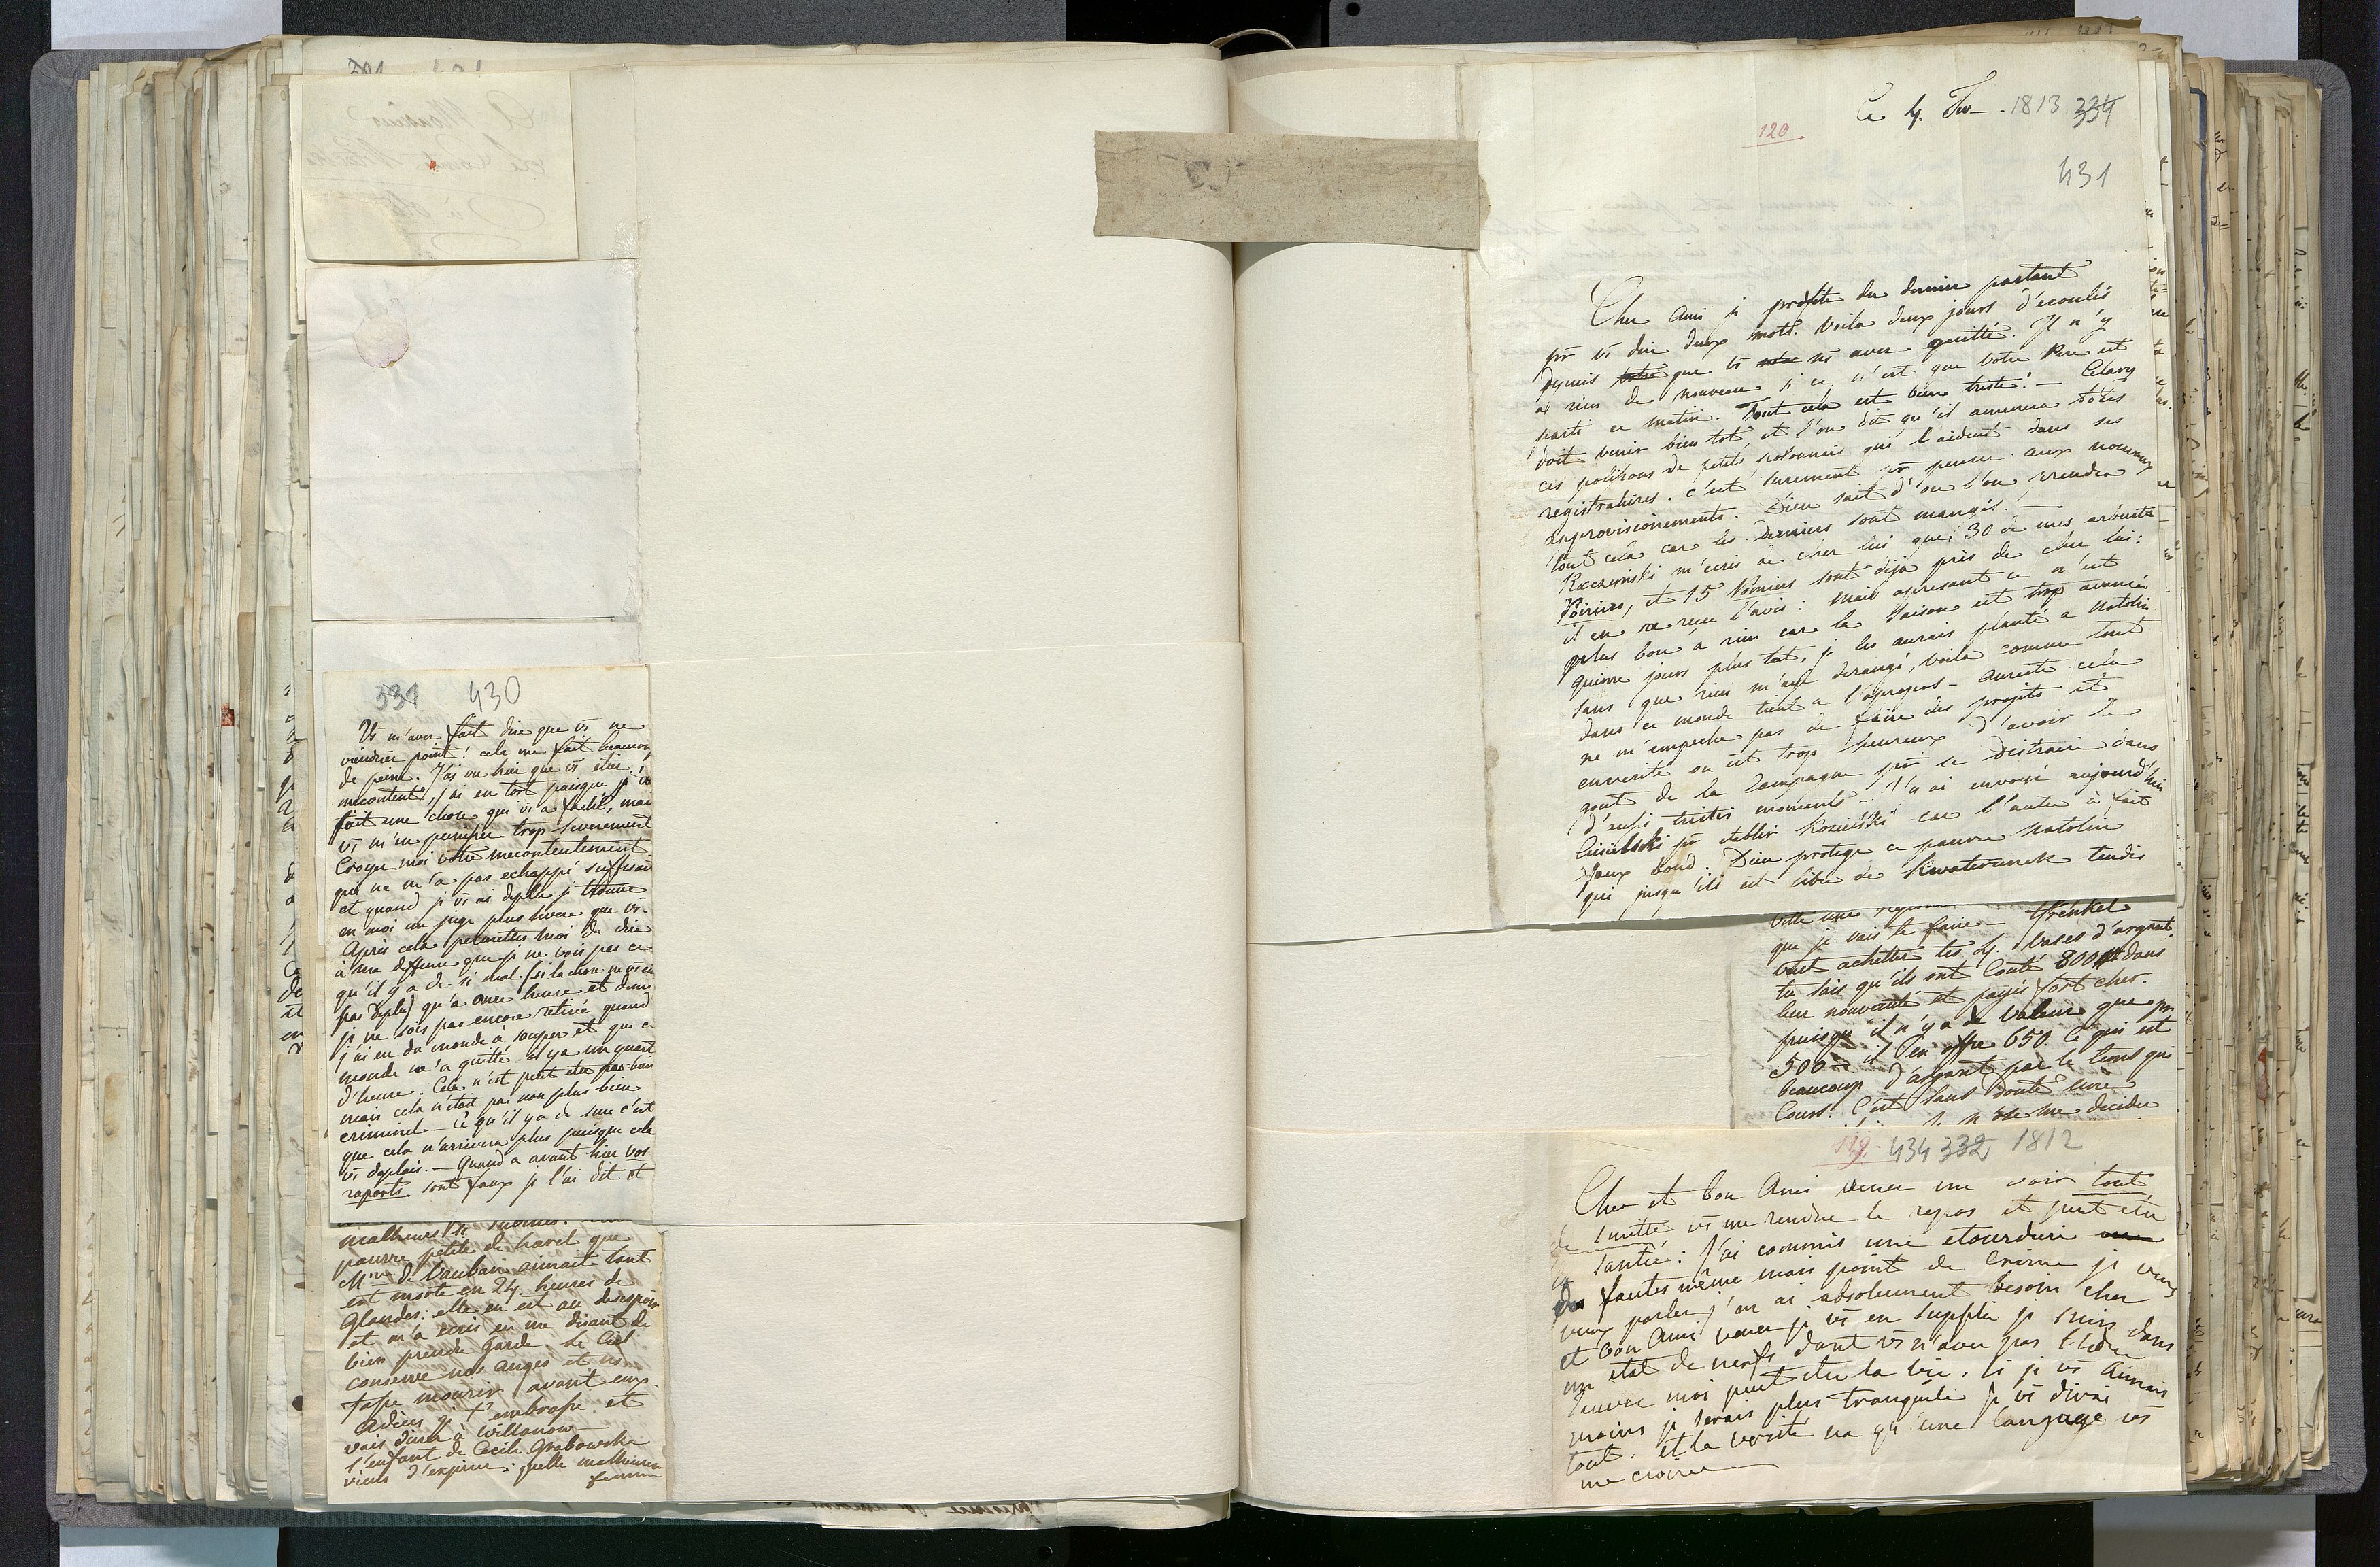 334 430
Vs m'avez fait dire que vs ne
viendrier point! cela me fait beaucoup
de peine. J'ai vu hier que vs etiez
mecontent, j'ai eu tort puisque j'ai
fait une chose qui vs a faché, mais
vs m'en punissez trop severement
Croyez moi votre mecontentement
qui ne m'a pas echappé suffisait
et quand je vs ai deplu je trouve
en moi un juge plus severe que vs.
Après cela permettez moi de dire
à ma deffense que je ne vois pas ce
qu'il y a de si mal (si la chose ne vs eu
pas deplu) qu'à onze heure et demi
je ne sois pas encore retirée quand
j'ai eu du monde à souper et que ce
monde m'a quitté il y a un quart
d'heure. Cela n'est peut etre pas bien
mais cela n'etait pas non plus bien
criminel — Ce qu'il y a de sure c'est
que cela n'arrivera plus puisque cela
vs deplais. — Quand a avant hier vos
raports sont faux je l'ai dit et
malheurs
pauvre petite de havel que
Mme de Vauban aimait tant
est morte en 24 heures de
Glandes: elle en est au desespoir
et m'a ecris en me disant de
bien prendre garde. Le Ciel
conserve nos anges et ns
fasse mourir avant eux.
Adieu je t'embrasse et
vais diner à Willanow
l'enfant de Cecile Grabowska
viens d'expirer: quelle malheureuse
femme
Ce 4. Fev. 1813. 334
120.
431
Cher Ami je profite du dernier partant
pr vs dire deux mots. Voila deux jours d'ecoulés
depuis que vs ns avez quitté. Il n'y
a rien de nouveau si ce n'est que votre Pere est
parti ce matin. Tout cela est bien triste! —
doit venir bientot, et l'on dit qu'il amenera tous
ces polissons de petits polonnais qui l'aident dans ses
registratures. c'est surement pr penser aux nouveaux
approvisionements. Dieu sait d'ou l'on prendra
tout cela car les derniers sont mangés. —
m'ecris de chez lui que 30 de mes arbustes
Poiriers, et 15 Pomiers sont deja près de chez lui:
il en a recu l'avis: mais apresant ce n'est
plus bon à rien car la saison est trop avancée
quinze jours plus tot, je les aurais planté a Natolin
sans que rien m'aye derangé, voila comme tout
dans ce monde tient a l'apropos — Aureste cela
ne m'empeche pas de faire des projets et
enverité on est trop heureux d'avoir le
gout de la Campagne pr se distraire dans
d'aussi tristes moments — J'y ai envoyé aujourd'hui
pr etablir car l'autre à fait
faux bond. Dieu protege ce pauvre Natolin
qui jusqu'ici est libre de Kwaterunek tendis
que je vais le faire — Frenkel
veut achetter tes vases d'argent.
tu sais qu'ils ont couté 800 # dans
leur nouveauté et payés fort cher.
puisqu'il n'y a de valeur que pr
500 — il en offre 650. Ce qui est
beaucoup d'argent par le tems qui
court. C'est sans doute
me decider
119. 434 332 1812
Cher et bon Ami venez me voir tout
de suitte vs me rendrez le repos et peut etre
la santée: J'ai commis une etourderie
des fautes même mais point de crime je veux
vous parler j'en ai absolument besoin cher
et bon Ami! venez je vs en supplie je suis dans
un etat de nerfs dont vs n'avez pas l'idée
sauvez moi peut etre la vie, si je vs aimais
moins je serais plus tranquile je vs dirai
tout. et la verité na qu'une langage vs
me croirez